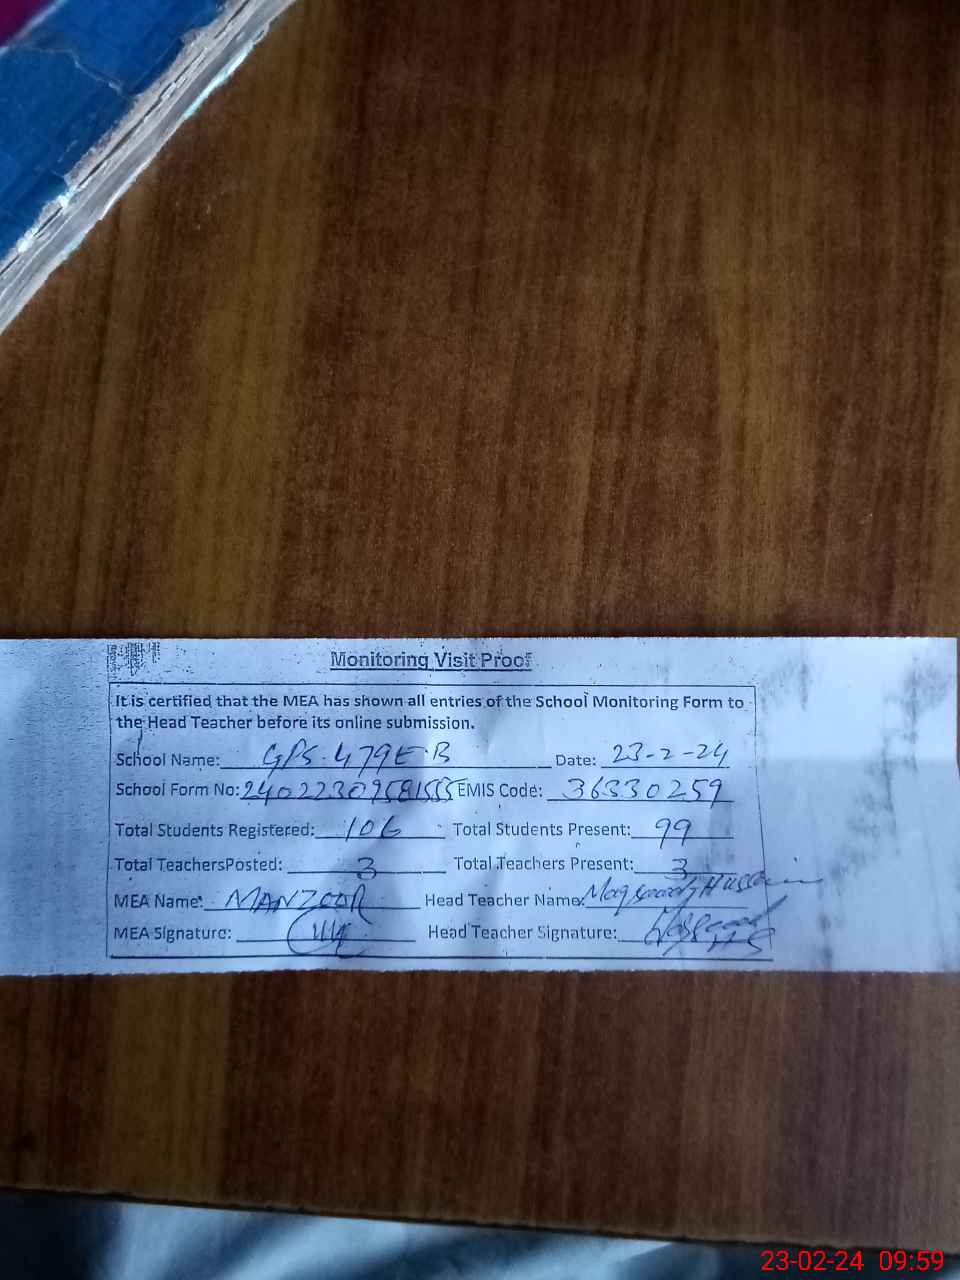 Monitoring Visit Proof
It is certified that the MEA has shown all entries of the School Monitoring Form to
the Head Teacher before its online submission.
School Name: GPS. 479 E.B Date: 23-2-24
School Form No: EMIS Code: 36330259
Total Students Registered: 106 Total Students Present: 99
Total TeachersPosted: 3 Total Teachers Present: 3
MEA Name: MANZOOR Head Teacher Name: Maqsood Hussain
MEA Signature: Head Teacher Signature:
23-02-24 09:59